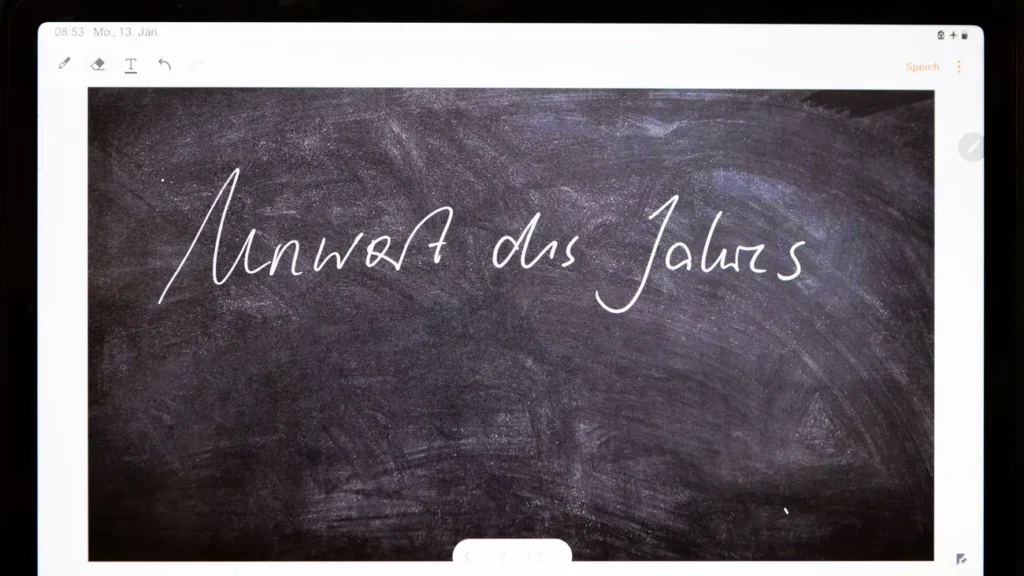 08:53 Mo., 13. Jan.
T
Speich.
Unwort des Jahres